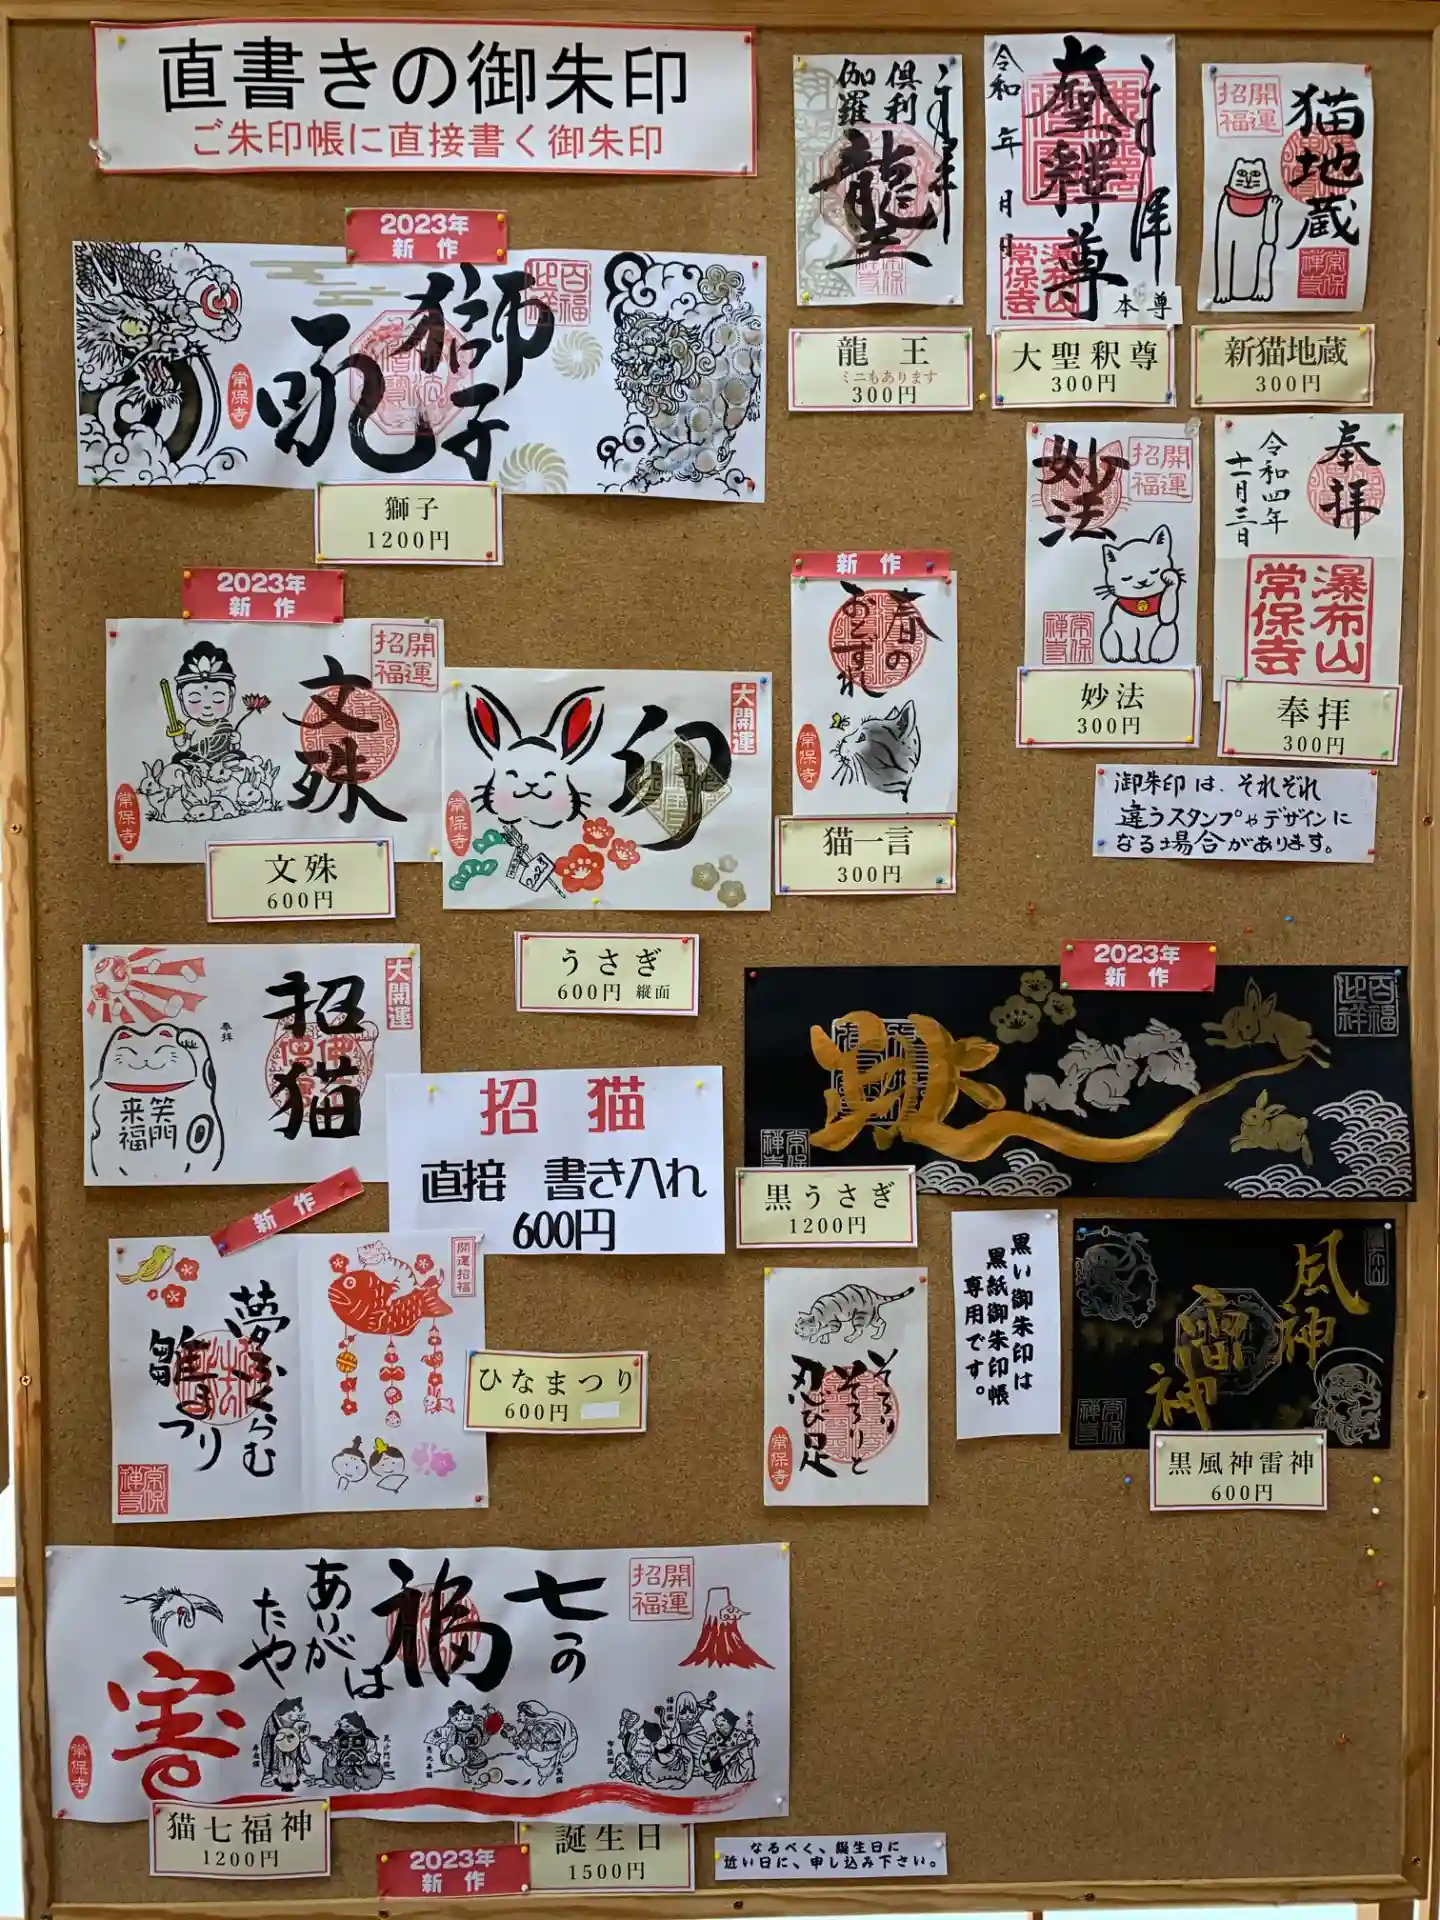 直書きの御朱印
ご朱印帳に直接書く御朱印
2023年
新作
獅子
吼
百福
此祥
常保寺
獅子
1200円
倶利
伽羅
龍王
龍王
ミニもあります
300円
令和 年 月 日
大聖釋尊
瀑布山
常保寺
本尊
大聖釈尊
300円
開運
招福
猫地蔵
新猫地蔵
300円
妙法
開運
招福
妙法
300円
奉拝
令和四年
十一月三日
瀑布山
常保寺
奉拝
300円
御朱印は、それぞれ
違うスタンプやデザインに
なる場合があります。
2023年
新作
開運
招福
文殊
常保寺
文殊
600円
大開運
印
常保寺
2023
うさぎ
600円 縦面
新作
春の
おとずれ
常保寺
猫一言
300円
大開運
招猫
奉拝
笑門
来福
招猫
直接 書き入れ
600円
2023年
新作
百福
此祥
黒うさぎ
1200円
新作
開運招福
夢ふくらむ
雛まつり
ひなまつり
600円
そろり
そろりと
忍び足
常保寺
黒い御朱印は
黒紙御朱印帳
専用です。
風神
雷神
黒風神雷神
600円
開運
招福
七の
福は
ありがたや
常保寺
猫七福神
1200円
2023年
新作
誕生日
1500円
なるべく、誕生日に
近い日に、申し込み下さい。